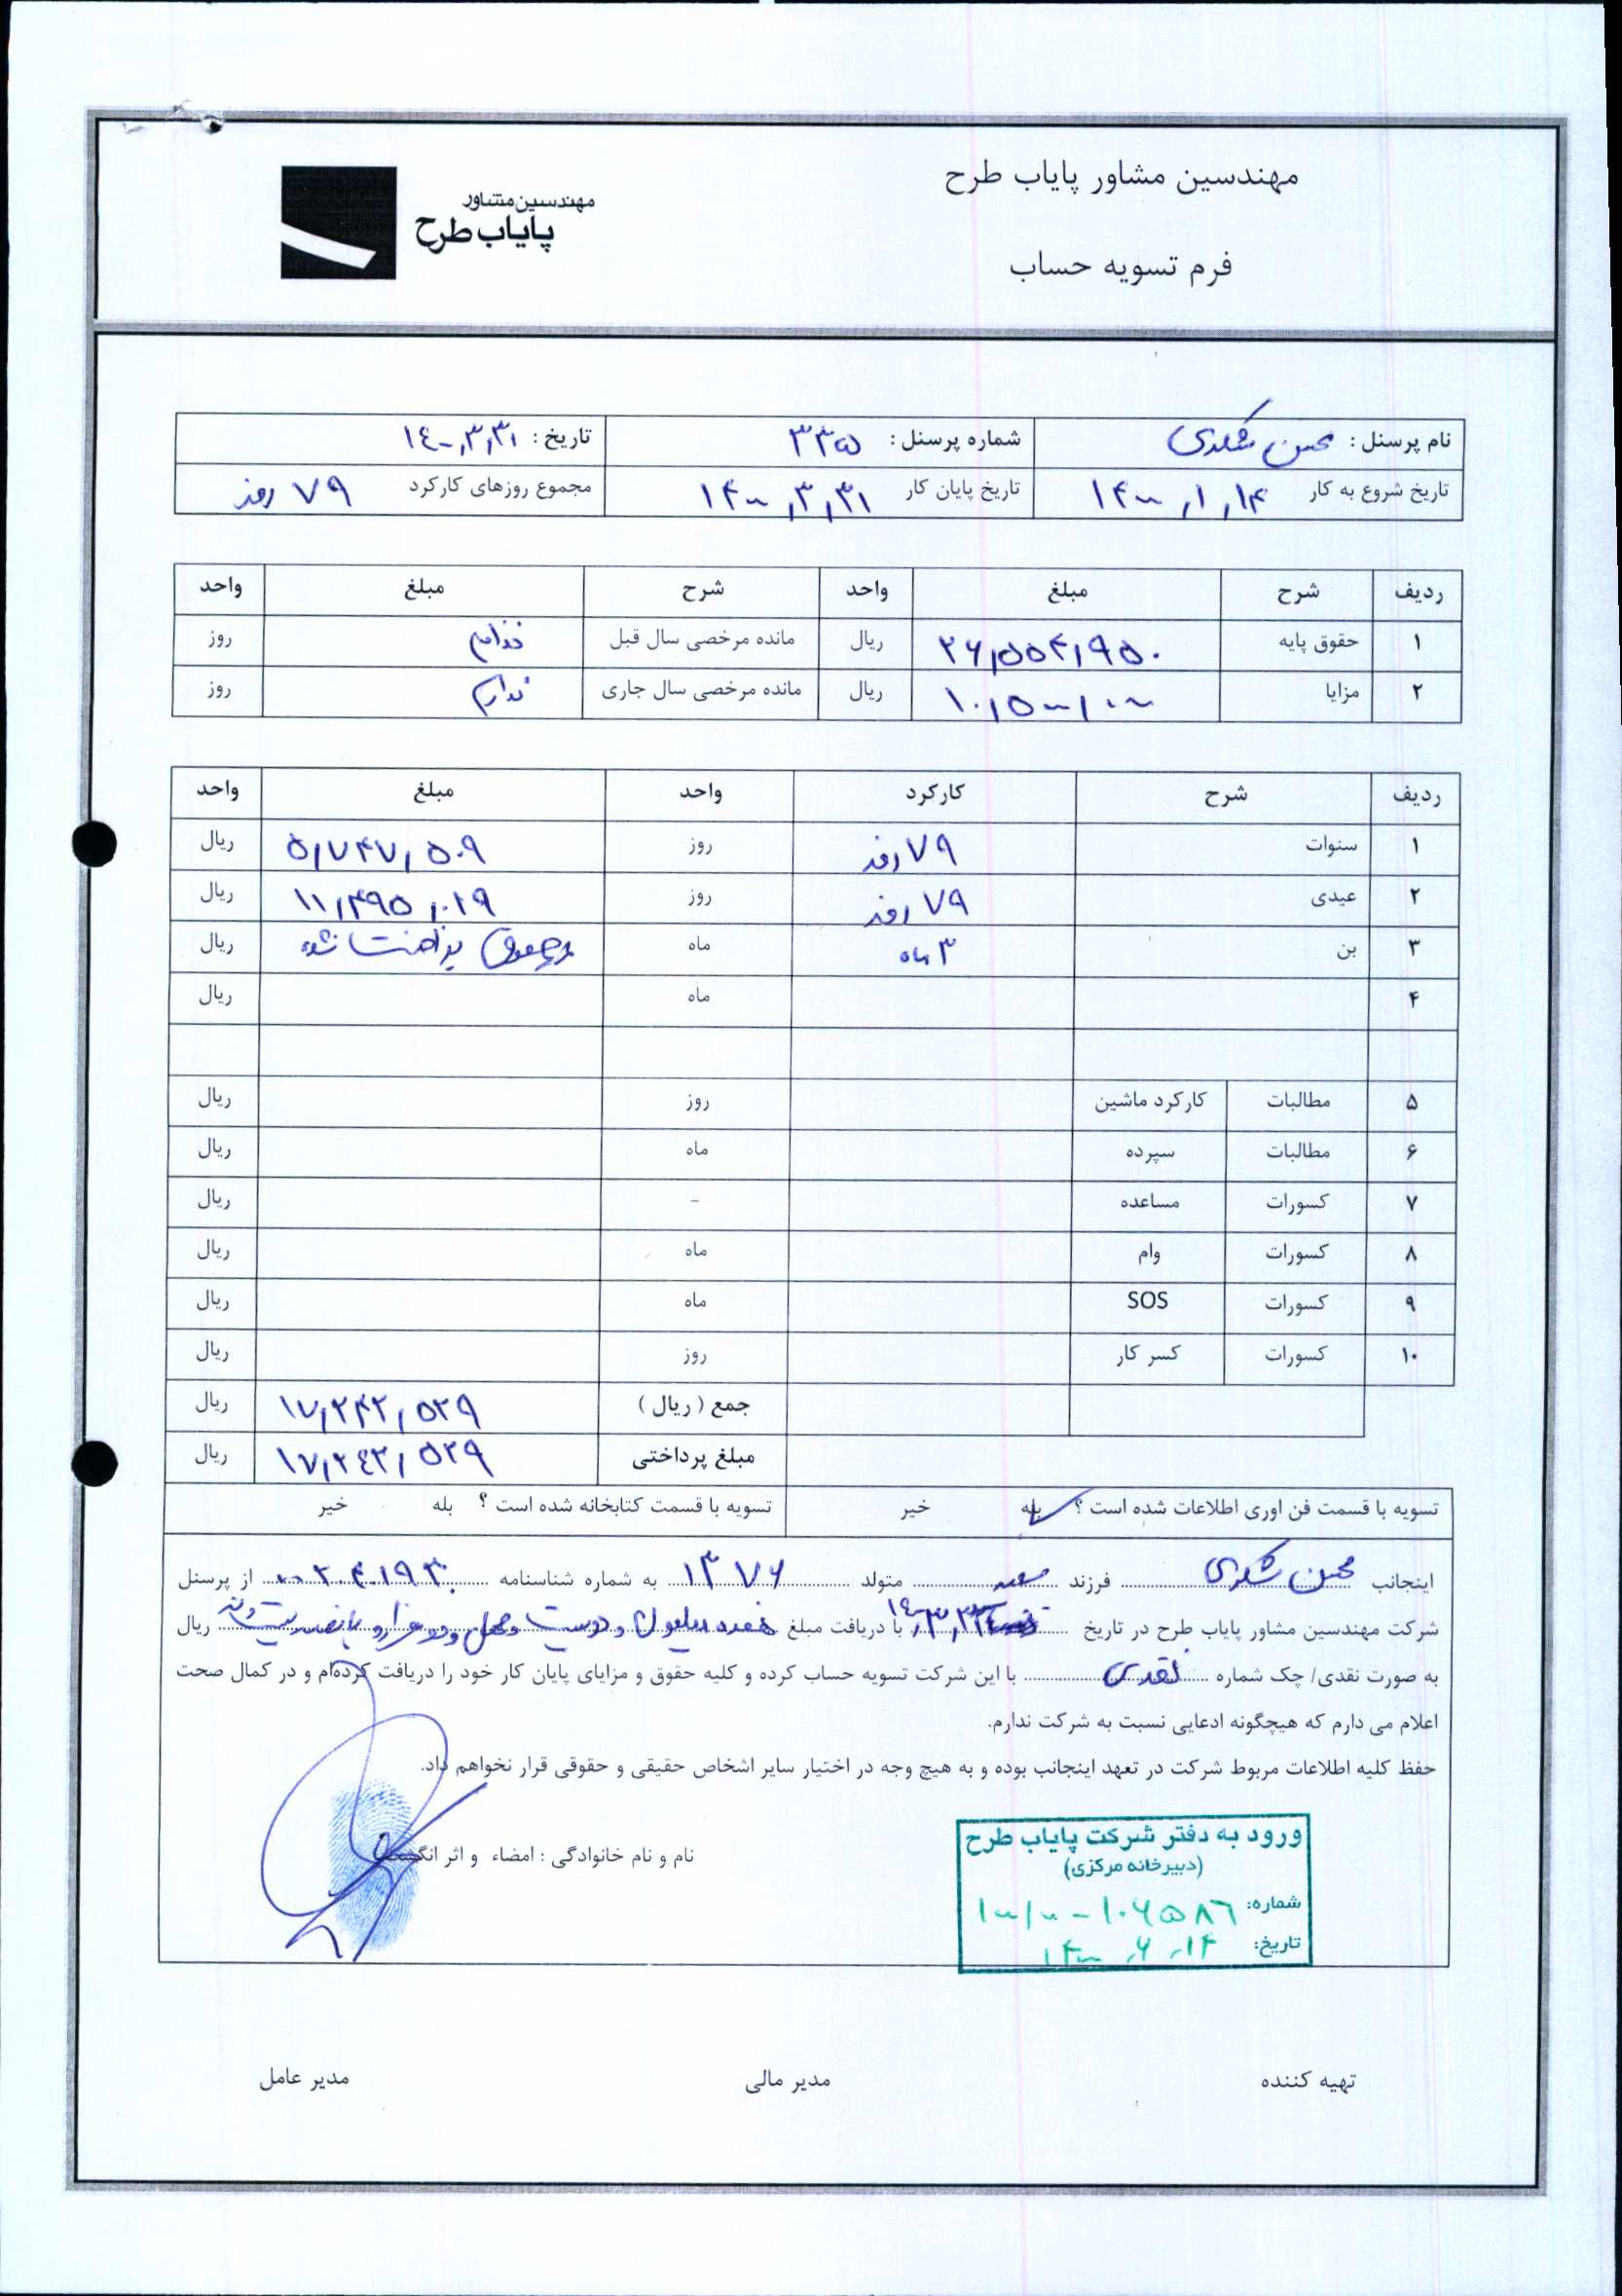 مهندسین مشاور پایاب طرح
مهندسین مشاور
پایاب طرح
فرم تسویه حساب
نام پرسنل : محسن شکری شماره پرسنل : ۳۳۵ تاریخ : ۱۴۰۰,۳,۳۱
تاریخ شروع به کار ۱۴۰۰,۱,۱۴ تاریخ پایان کار ۱۴۰۰,۳,۳۱ مجموع روزهای کارکرد ۷۹ روز
ردیف شرح مبلغ واحد شرح مبلغ واحد
۱ حقوق پایه ۲۶,۵۵۴,۹۵۰ ریال مانده مرخصی سال قبل ندارم روز
۲ مزایا ۱۰,۵۰۰,۰۰۰ ریال مانده مرخصی سال جاری ندارم روز
ردیف شرح کارکرد واحد مبلغ واحد
۱ سنوات ۷۹ روز روز ۵,۷۴۷,۵۰۹ ریال
۲ عیدی ۷۹ روز روز ۱۱,۴۹۵,۰۱۹ ریال
۳ بن ۳ ماه ماه پرداخت شده ریال
۴ ماه ریال
۵ مطالبات کارکرد ماشین روز ریال
۶ مطالبات سپرده ماه ریال
۷ کسورات مساعده - ریال
۸ کسورات وام ماه ریال
۹ کسورات SOS ماه ریال
۱۰ کسورات کسر کار روز ریال
جمع ( ریال ) ۱۷,۲۴۲,۵۲۹ ریال
مبلغ پرداختی ۱۷,۲۴۲,۵۲۹ ریال
تسویه با قسمت فن اوری اطلاعات شده است ؟ بله خیر تسویه با قسمت کتابخانه شده است ؟ بله خیر
اینجانب محسن شکری فرزند سعید متولد ۱۳۷۶ به شماره شناسنامه ۰۰۲۰۴۰۱۹۳۰ از پرسنل
شرکت مهندسین مشاور پایاب طرح در تاریخ با دریافت مبلغ هفده میلیون و دویست و چهل و دو هزار و پانصد و بیست و نه ریال
به صورت نقدی/ چک شماره نقدی با این شرکت تسویه حساب کرده و کلیه حقوق و مزایای پایان کار خود را دریافت کرده‌ام و در کمال صحت
اعلام می دارم که هیچگونه ادعایی نسبت به شرکت ندارم.
حفظ کلیه اطلاعات مربوط شرکت در تعهد اینجانب بوده و به هیچ وجه در اختیار سایر اشخاص حقیقی و حقوقی قرار نخواهم داد.
نام و نام خانوادگی : امضاء و اثر انگشت
ورود به دفتر شرکت پایاب طرح
(دبیرخانه مرکزی)
شماره: ۱۰۰/۰۰-۱۰۶۵۸۶
تاریخ: ۱۴۰۰,۶,۱۴
تهیه کننده مدیر مالی مدیر عامل